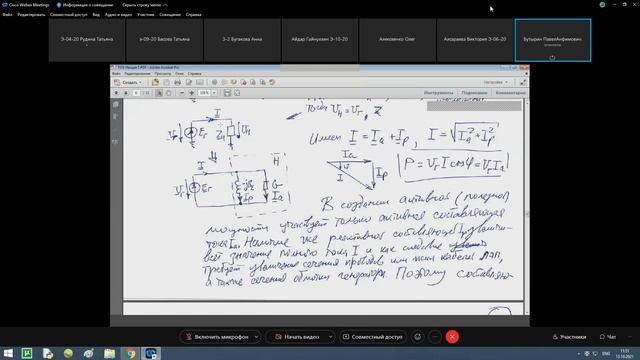 Cisco Webex Meetings
Информация о совещании
Скрыть строку меню
Файл Правка Совместный доступ Вид Аудио и видео Участник Совещание Справка
Э-04-20 Рудина Татьяна
э-09-20 Басова Татьяна
3-2 Бугакова Анна
Айдар Гайнуллин Э-10-20
Алексеенко Олег
Ахсараева Виктория Э-06-20
Бутырин ПавелАнфимович
Создать
Инструменты
Подписание
Комментарии
Тогда Uн = Uг, Z
Имеем I = Iа + Iр, I = √Iа² + Iр²
P = Uг I cosφ = Uг Iа
В создании активной (полезной)
мощности участвует только активная составляющая
тока Iа. Наличие же реактивной составляющей Iр увеличи-
вает значение полного тока I и как следствие
требует увеличение сечения проводов или жил кабелей ЛЭП,
а также сечения обмотки генератора. Поэтому составляю-
Включить микрофон
Начать видео
Совместный доступ
Участники
Чат
11:51
13.10.2021